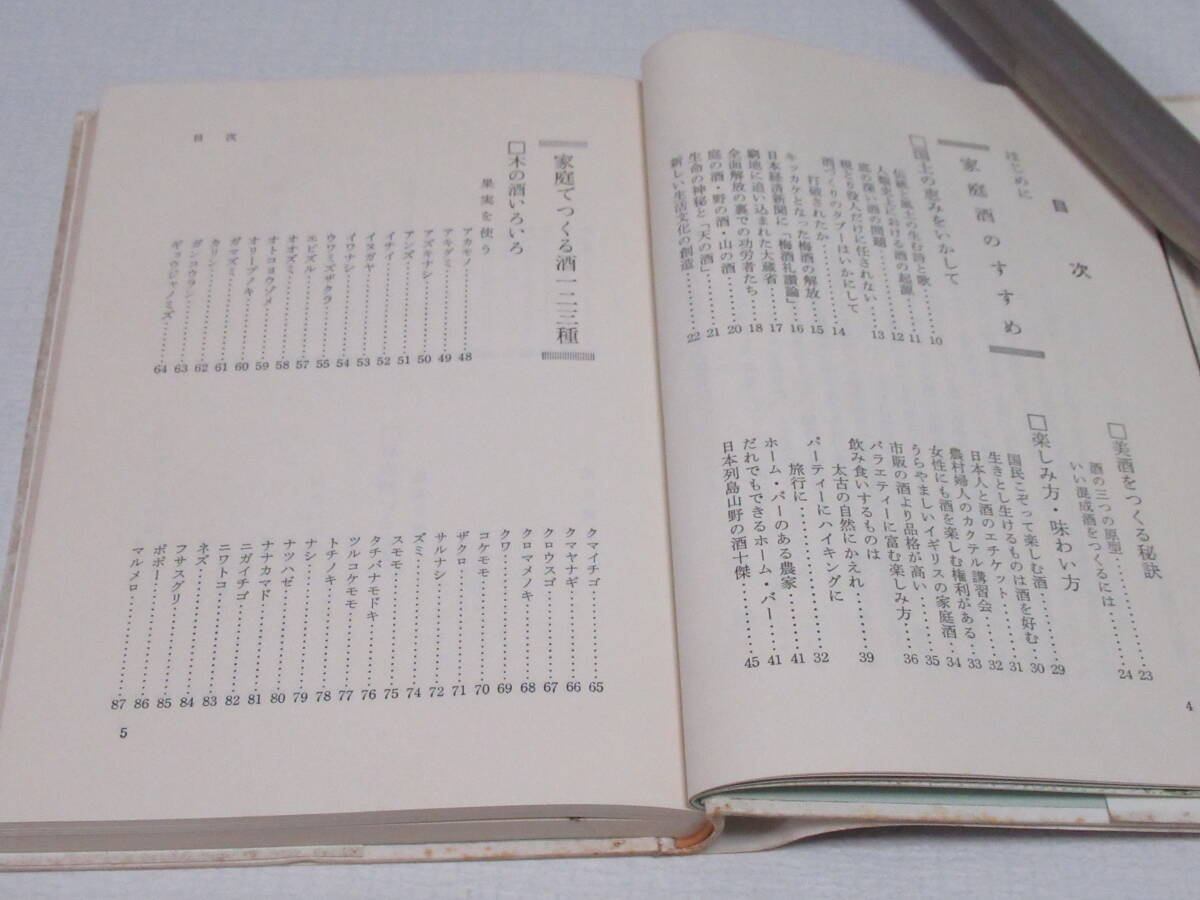 目次
はじめに
家庭酒のすすめ
□国土の恵みをいかして………10
伝統と風土の生む詩と歌………11
人類史上における酒の起源……12
底の深い酒の問題………13
税とり役人だけに任されない
酒づくりのタブーはいかにして
打破されたか………14
キッカケとなった梅酒の解放……15
日本経済新聞に「梅酒礼讃論」…16
窮地に追い込まれた大蔵省………17
全面解放の裏での功労者たち……18
庭の酒・野の酒・山の酒………20
生命の神秘と「天の酒」………21
新しい生活文化の創造………22
□美酒をつくる秘訣
酒の三つの原型………23
いい混成酒をつくるには………24
□楽しみ方・味わい方
国民こぞって楽しむ酒………29
生きとし生けるものは酒を好む…30
日本人と酒のエチケット………31
農村婦人のカクテル講習会………32
女性にも酒を楽しむ権利がある…33
うらやましいイギリスの家庭酒…34
市販の酒より品格が高い………35
バラエティーに富む楽しみ方……36
飲み食いするものは
太古の自然にかえれ………39
パーティーにハイキングに
旅行に………32
ホーム・バーのある農家………41
だれでもできるホーム・バー……41
日本列島山野の酒十傑………45
4
目次
家庭でつくる酒一二三種
□木の酒いろいろ
果実を使う
アカモノ………48
アキグミ………49
アズキナシ………50
アンズ………51
イチイ………52
イヌガヤ………53
イワナシ………54
ウワミズザクラ………55
エビズル………57
オオズミ………58
オトコヨウゾメ………59
オリーブノキ………60
ガマズミ………61
カリン………62
ガンコウラン………63
ギョウジャノミズ………64
クマイチゴ………65
クマヤナギ………66
クロウスゴ………67
クロマメノキ………68
クワ………69
コケモモ………70
ザクロ………71
サルナシ………72
ズミ………74
スモモ………75
タチバナモドキ………76
ツルコケモモ………77
トチノキ………78
ナシ………79
ナツハゼ………80
ナナカマド………81
ニガイチゴ………82
ニワトコ………83
ネズ………84
フサスグリ………85
ポポー………86
マルメロ………87
5